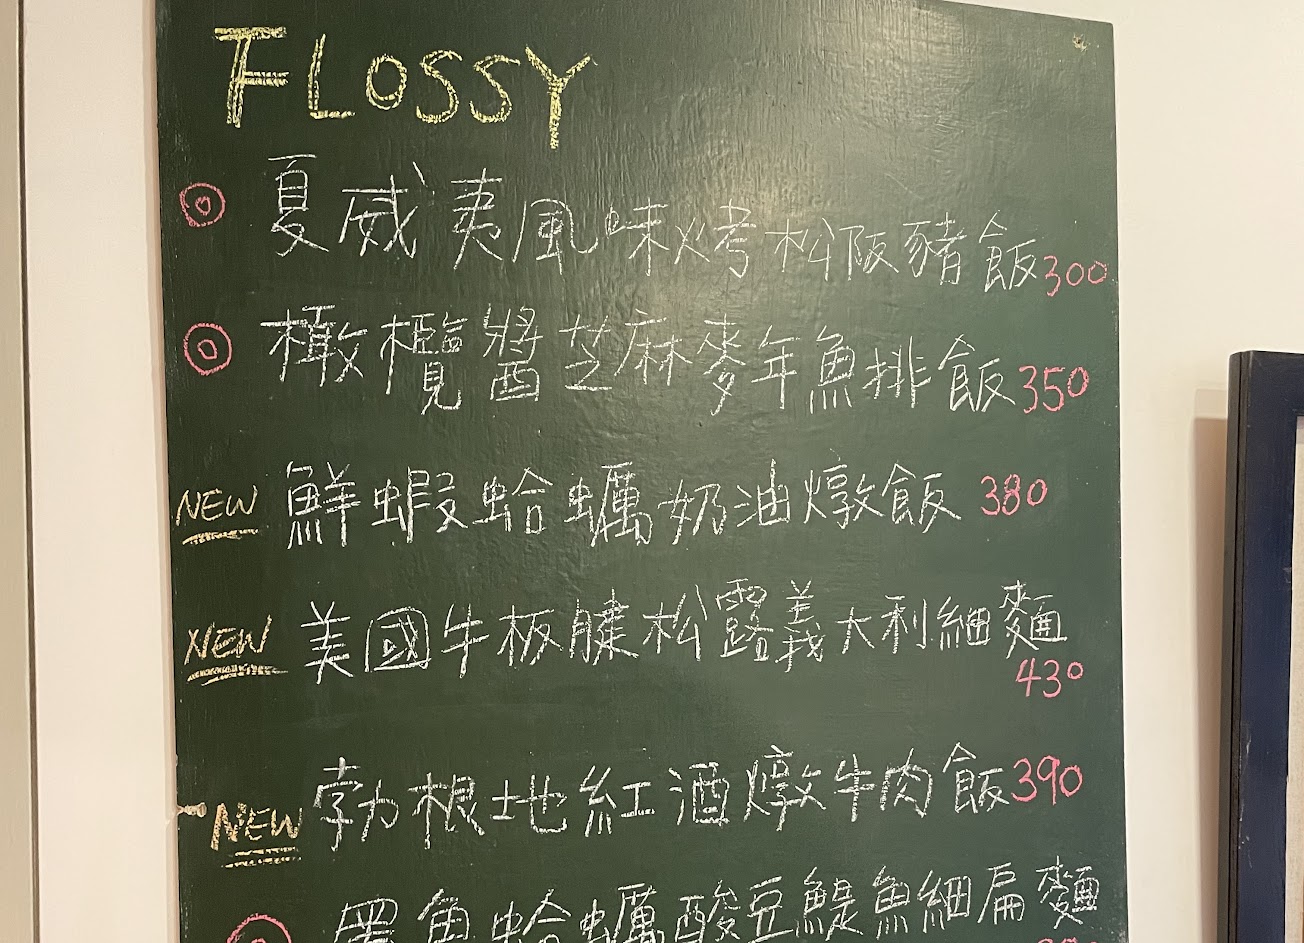 FLOSSY
夏威夷風味烤松阪豬飯300
橄欖醬芝麻麥年魚排飯350
NEW 鮮蝦蛤蠣奶油燉飯 380
NEW 美國牛板腱松露義大利細麵
430
NEW 勃根地紅酒燉牛肉飯390
墨魚蛤蠣酸豆鯷魚細扁麵